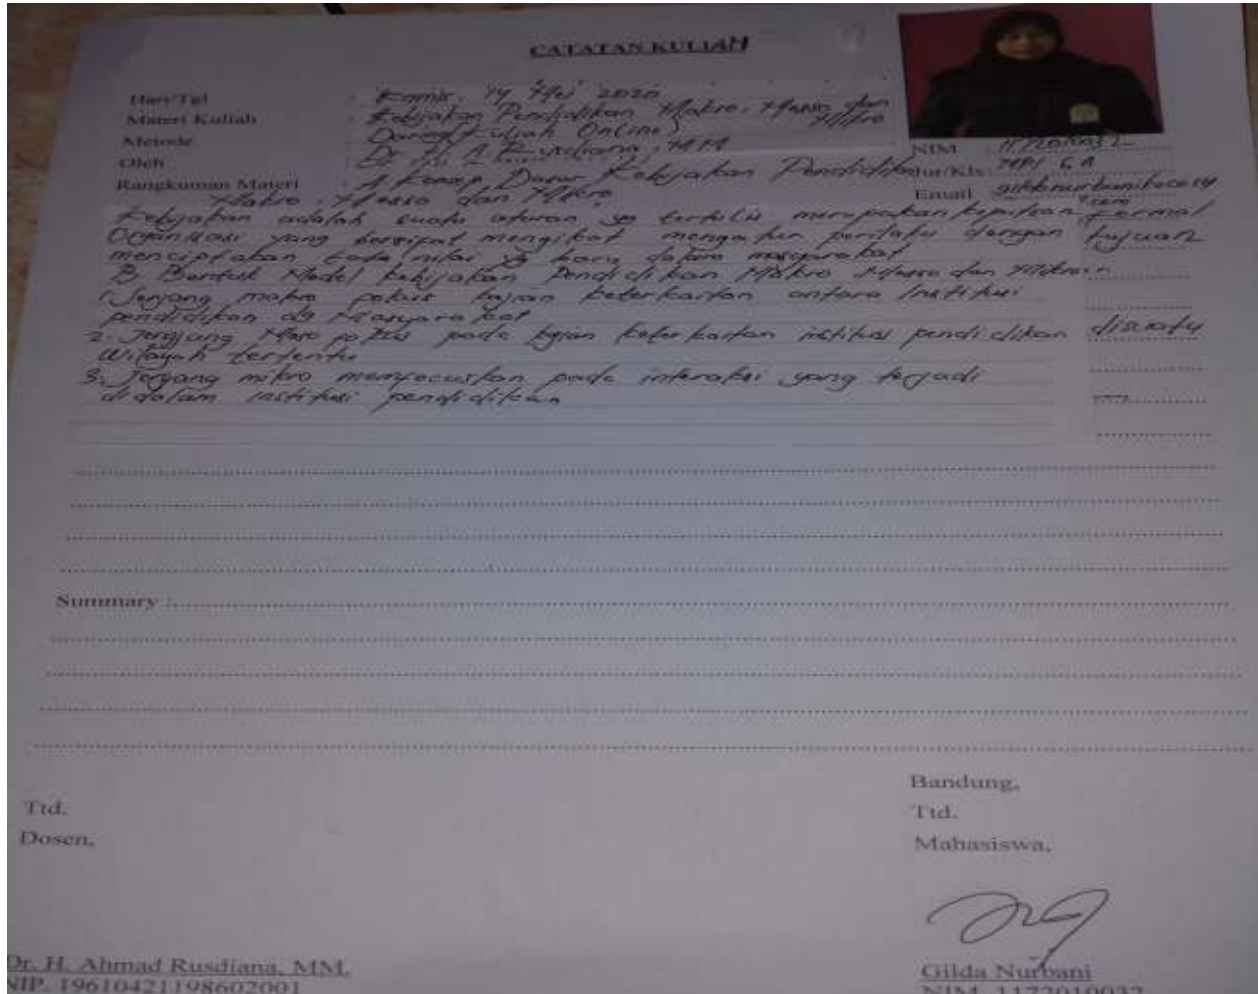 CATATAN KULIAH
Hari/Tgl : Kamis, 14 Mei 2020
Materi Kuliah : Kebijakan Pendidikan Makro, Messo dan Mikro
Metode : Daring (Kuliah Online)
Oleh : Dr. H. A. Rusdiana, MM
NIM : 1172010032
Jur/Kls : MPI 6 A
Rangkuman Materi : A. Konsep Dasar Kebijakan Pendidikan
Email
Makro, Messo dan Mikro
Kebijakan adalah suatu aturan yg tertulis merupakan keputsan formal
Organisasi yang bersipat mengikat mengatur perilaku dengan tujuan
menciptakan tata nilai yg baru dalam masyarakat
B Bentuk Model kebijakan Pendidikan Makro Messo dan Mikro
1. Jenjang makro pokus kajian keterkaitan antara Institusi
pendidikan dg Masyarakat
2. Jenjang Meso pokus pada kajian keterkaitan institusi pendidikan disuatu
Wilayah tertentu
3. Jenjang mikro memfocuskan pada interaksi yang terjadi
didalam institusi pendidikan
Summary :
Bandung,
Ttd.
Ttd.
Dosen,
Mahasiswa,
Dr. H. Ahmad Rusdiana, MM.
Gilda Nurbani
NIP. 19610421198602001
NIM. 1172010032